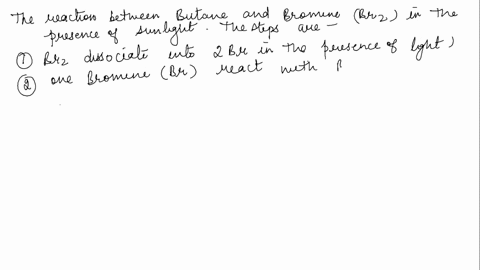 The reaction between Butane and Bromine (Br2) in the
presence of sunlight. The steps are -
① Br2 dissociate into 2Br in the presence of light)
② one Bromine (Br) react with B